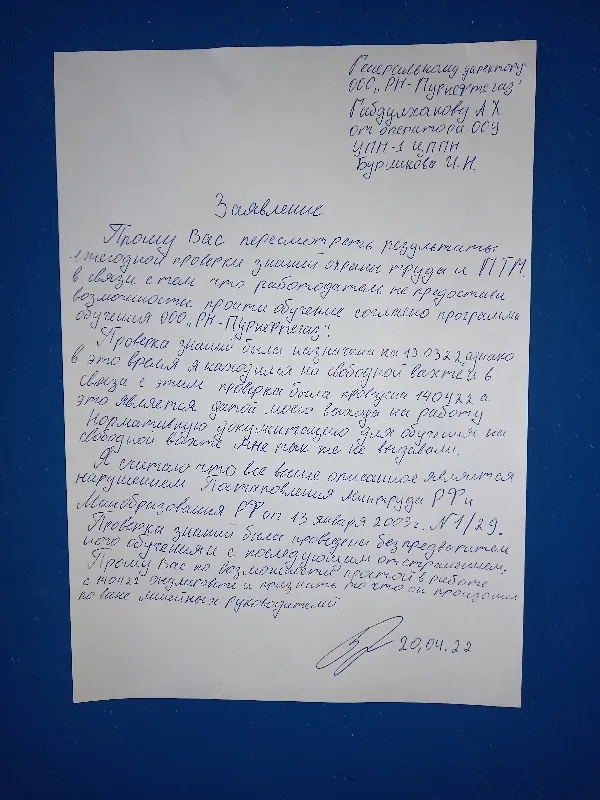 Генеральному директору
ООО „РН-Пурнефтегаз"
Габдулхакову А.Х
от оператора ООУ
ЦПН-1 ЦППН
Бурликова И.Н.
Заявление
Прошу Вас пересмотреть результаты
ежегодной проверки знаний охраны труда и ПТМ
в связи с тем что работодателем не предостави
возможности пройти обучение согласно программы
обучения ООО „РН-Пурнефтегаз".
Проверка знаний была назначена на 13.03.22 однако
в это время я находился на свободной вахте и в
связи с этим проверка была проведена 140422 а
это является датой моего выхода на работу
Нормативную документацию для обучения на
свободной вахте мне так же не выдавали.
Я считаю что всё выше описанное является
нарушением Постановления Минтруда РФ и
Минобразования РФ от 13 января 2003г. N1/29.
Проверка знаний была проведена без предварител
ного обучения и с последующим отстранением.
Прошу Вас по возможности простой в работе
с 140422 и признать то что он произошел
по вине линейных руководителей.
20.04.22